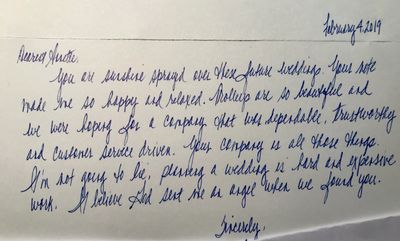 February 4, 2019
Dearest Anette,
You are sunshine sprayed over these future weddings. Your note
made me so happy and relaxed. Trolleys are so beautiful and
we were hoping for a company that was dependable, trustworthy
and customer service driven. Your company is all those things.
I'm not going to lie, planning a wedding is hard and expensive
work. I believe God sent me an angel when we found you.
Sincerely,